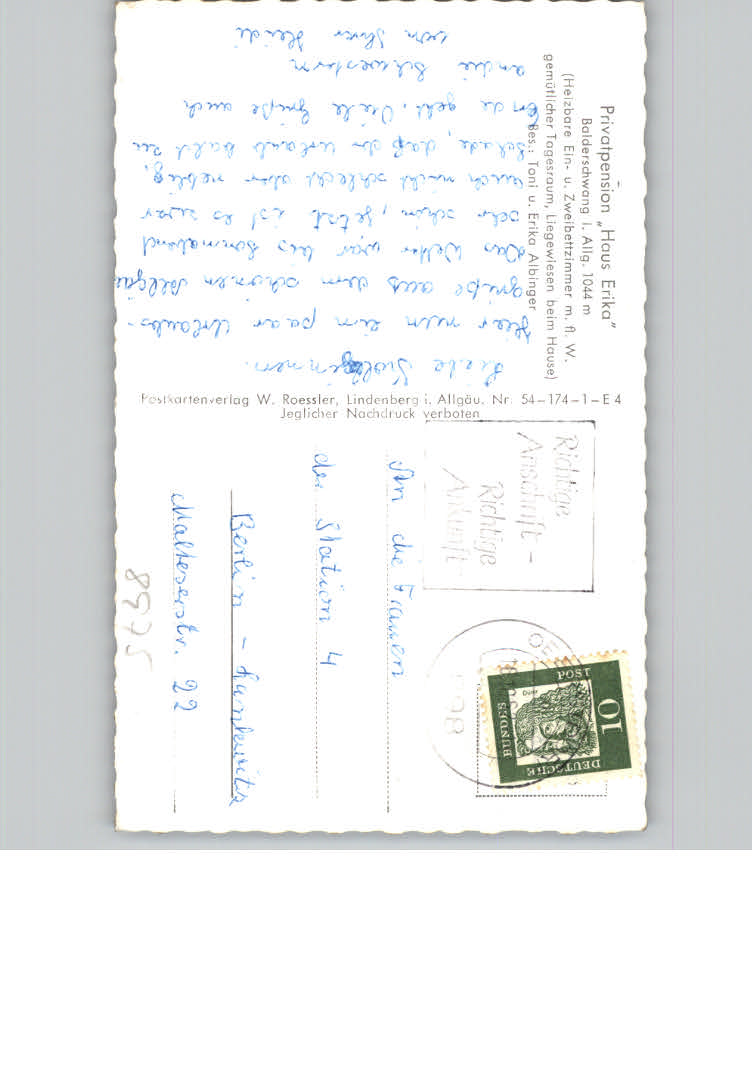 Privatpension „Haus Erika"
Balderschwang i. Allg. 1044 m
(Heizbare Ein- u. Zweibettzimmer m. fl. W.
gemütlicher Tagesraum, Liegewiesen beim Hause)
Bes.: Toni u. Erika Albinger
Liebe Kolleginnen.
Hier nun ein paar Urlaubs-
grüße aus dem schönen Allgäu
Das Wetter war bis Sonnabend
sehr schön, jetzt ist es zwar
auch nicht schlecht aber neblig,
Schade, daß der Urlaub bald zu
Ende geht. Viele Grüße auch
an die Schwestern
von Ihrer Heidi
Postkartenverlag W. Roessler, Lindenberg i. Allgäu. Nr. 54–174–1–E 4
Jeglicher Nachdruck verboten
Richtige
Anschrift –
Richtige
Ankunft
10
DEUTSCHE
BUNDES
POST
Dürer
An die Frauen
der Station 4
Berlin – Lankwitz
Malteserstr. 22